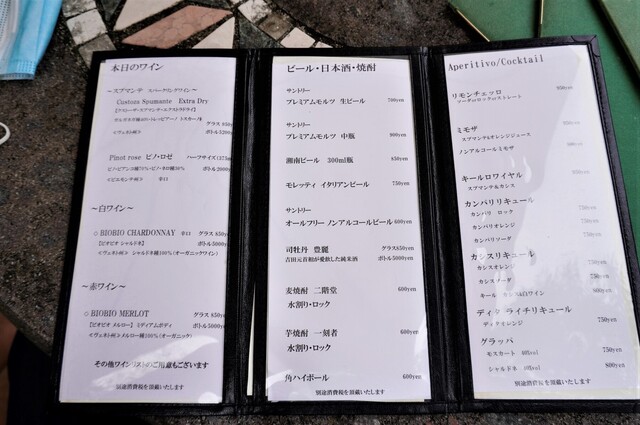 本日のワイン
～スプマンテ スパークリングワイン～
Custoza Spumante Extra Dry
グラス 850y
＜ヴェネト州＞ ボトル5200
Pinot rose ピノ・ロゼ ハーフサイズ(375m
＜ピエモンテ州＞ 辛口
～白ワイン～
◇BIOBIO CHARDONNAY 辛口 グラス 850y
【ビオビオ シャルドネ】 ボトル5000
＜ヴェネト州＞ シャルドネ種100%(オーガニックワイン)
～赤ワイン～
◇BIOBIO MERLOT グラス 850y
【ビオビオ メルロー】 ミディアムボディ ボトル5000
＜ヴェネト州＞メルロー種100%(オーガニックワイン)
その他ワインリストのご用意もございます
別途消費税を頂戴いたします
ビール・日本酒・焼酎
サントリー
プレミアムモルツ 生ビール 700yen
サントリー
プレミアムモルツ 中瓶 900yen
湘南ビール 300ml瓶 850yen
モレッティ イタリアンビール 750yen
サントリー
オールフリー ノンアルコールビール 600yen
司牡丹 豊麗 グラス850yen
吉田元首相が愛飲した純米酒 ボトル5000yen
麦焼酎 二階堂 600yen
水割り・ロック
芋焼酎 一刻者 600yen
水割り・ロック
角ハイボール 600yen
別途消費税を頂戴いたします
Aperitivo/Cocktail
リモンチェッロ
ソーダorロックorストレート
ミモザ
スプマンテ&オレンジジュース
ノンアルコールミモザ
キールロワイヤル
スプマンテ&カシス
カンパリリキュール
カンパリ ロック
カンパリオレンジ 750yen
カンパリソーダ
カシスリキュール
カシスオレンジ
カシスソーダ
キール カシス&白ワイン
ディタ ライチリキュール
ディタオレンジ 750yen
グラッパ
モスカート 40%vol 750yen
シャルドネ 40%vol 800yen
別途消費税を頂戴いたします